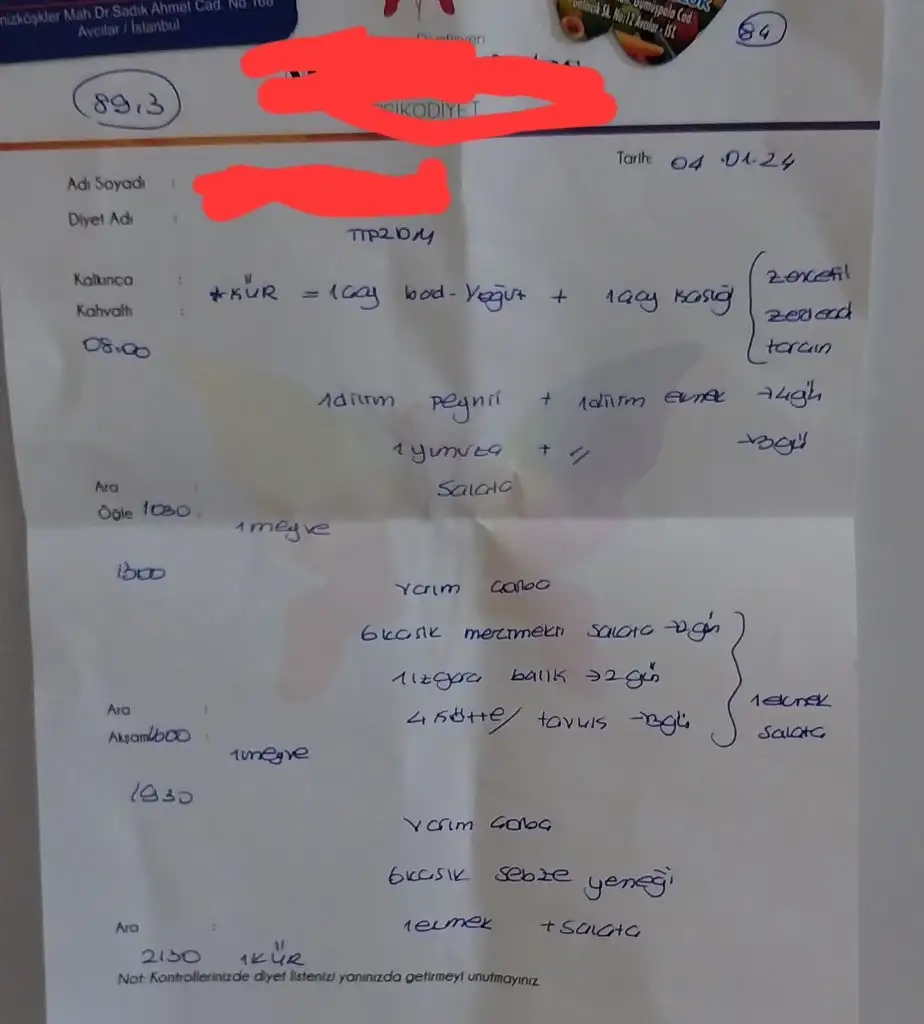 nizköşkler Mah Dr Sadık Ahmet Cad. No 168
Avcılar / İstanbul
Gümüşpala Cad.
Sk. No:12 Avcılar - İST
84
89,3
PSİKODİYET
Tarih: 04.01.24
Adı Soyadı :
Diyet Adı :
Kalkınca :
Kahvaltı :
08.00
*KÜR = 1 çay bad-Yoğurt + 1 çay kaşığı
zencefil
zerdeçal
tarçın
1 dilim peynir + 1 dilim ekmek → 4 gün
1 yumurta + " → 3 gün
Salata
Ara :
Öğle 1030 :
1 meyve
1300
Yarım çorba
6 kaşık mercimekli salata → 2 gün
1 ızgara balık → 2 gün
4 köfte/ tavuk → 3 gün
1 ekmek
Salata
Ara :
Akşam 1600 :
1 meyve
1930
Yarım çorba
6 kaşık sebze yemeği
1 ekmek + Salata
Ara :
2130 1 KÜR
Not: Kontrollerinizde diyet listenizi yanınızda getirmeyi unutmayınız